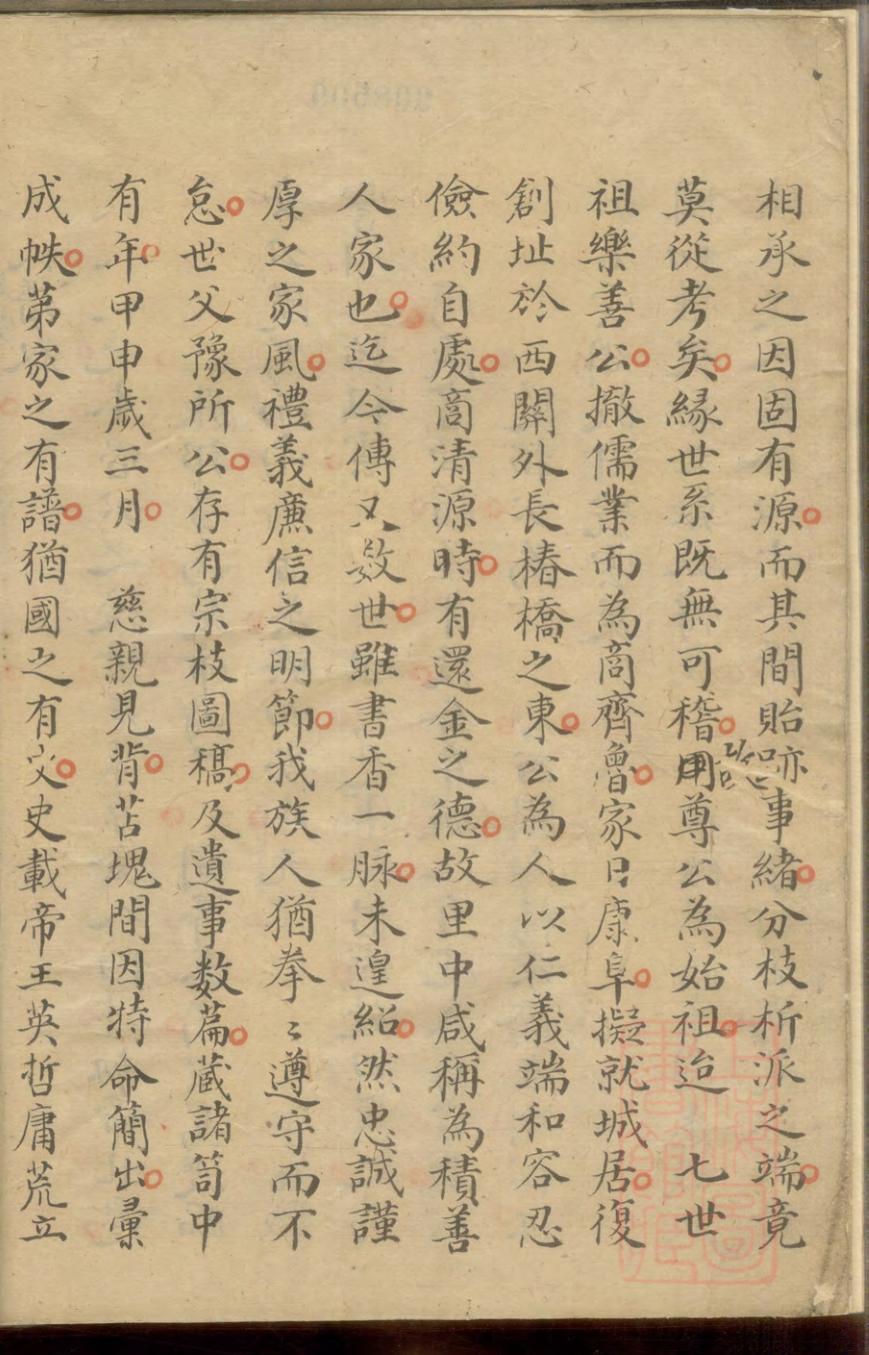 相承之因固有源而其間貽跡事緒分枝析派之端竟
莫從考矣緣世系既無可稽用尊公為始祖迨　七世
祖樂善公撤儒業而為商齊魯家日康阜擬就城居復
創址於西關外長椿橋之東公為人以仁義端和容忍
儉約自處商清源時有還金之德故里中咸稱為積善
人家也迄今傳又数世雖書香一脉未遑紹然忠誠謹
厚之家風禮義廉信之明節我族人猶拳〻遵守而不
怠世父豫所公存有宗枝圖稿及遺事数篇蔵諸笥中
有年甲申歲三月　慈親見背苫塊間因特命簡出彙
成帙第家之有譜猶國之有史載帝王英哲庸荒立